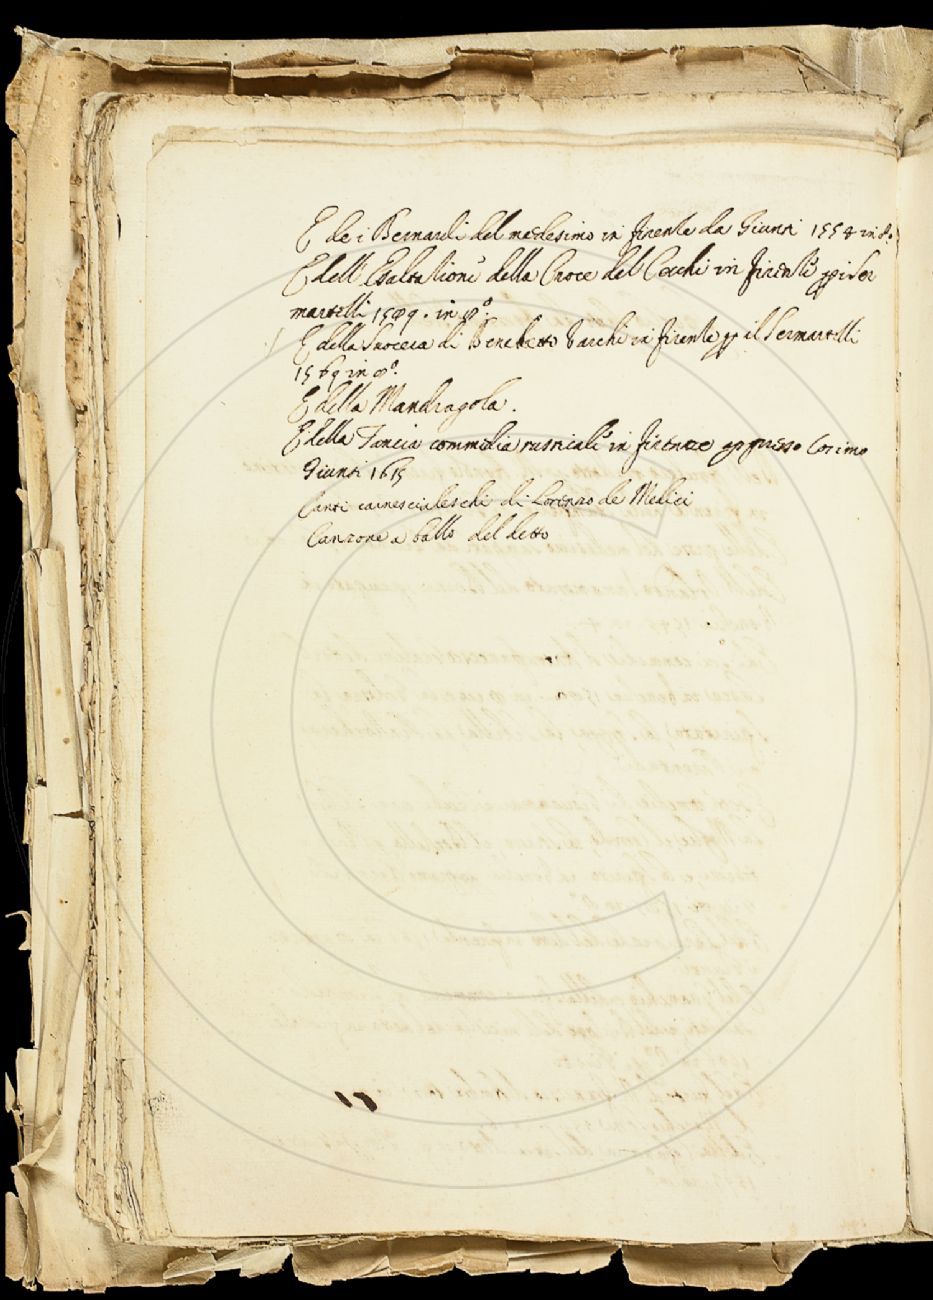 E de i Bernardi del medesimo in firenle da Giunti 1554 in 8.
E dell Esaltatione della Croce del Cecchi in firenle ppi ser
martelli 1589. in 8°.
E della Suocera di Benedetto Varchi in firenle pp il Sermartelli
1569 in 8°.
E della Mandragola.
E della Tancia commedia rusticale in firenze appresso Cosimo
Giunti 1615
Canti carnescialeschi di Lorenzo de Medici
Canzone a ballo del detto